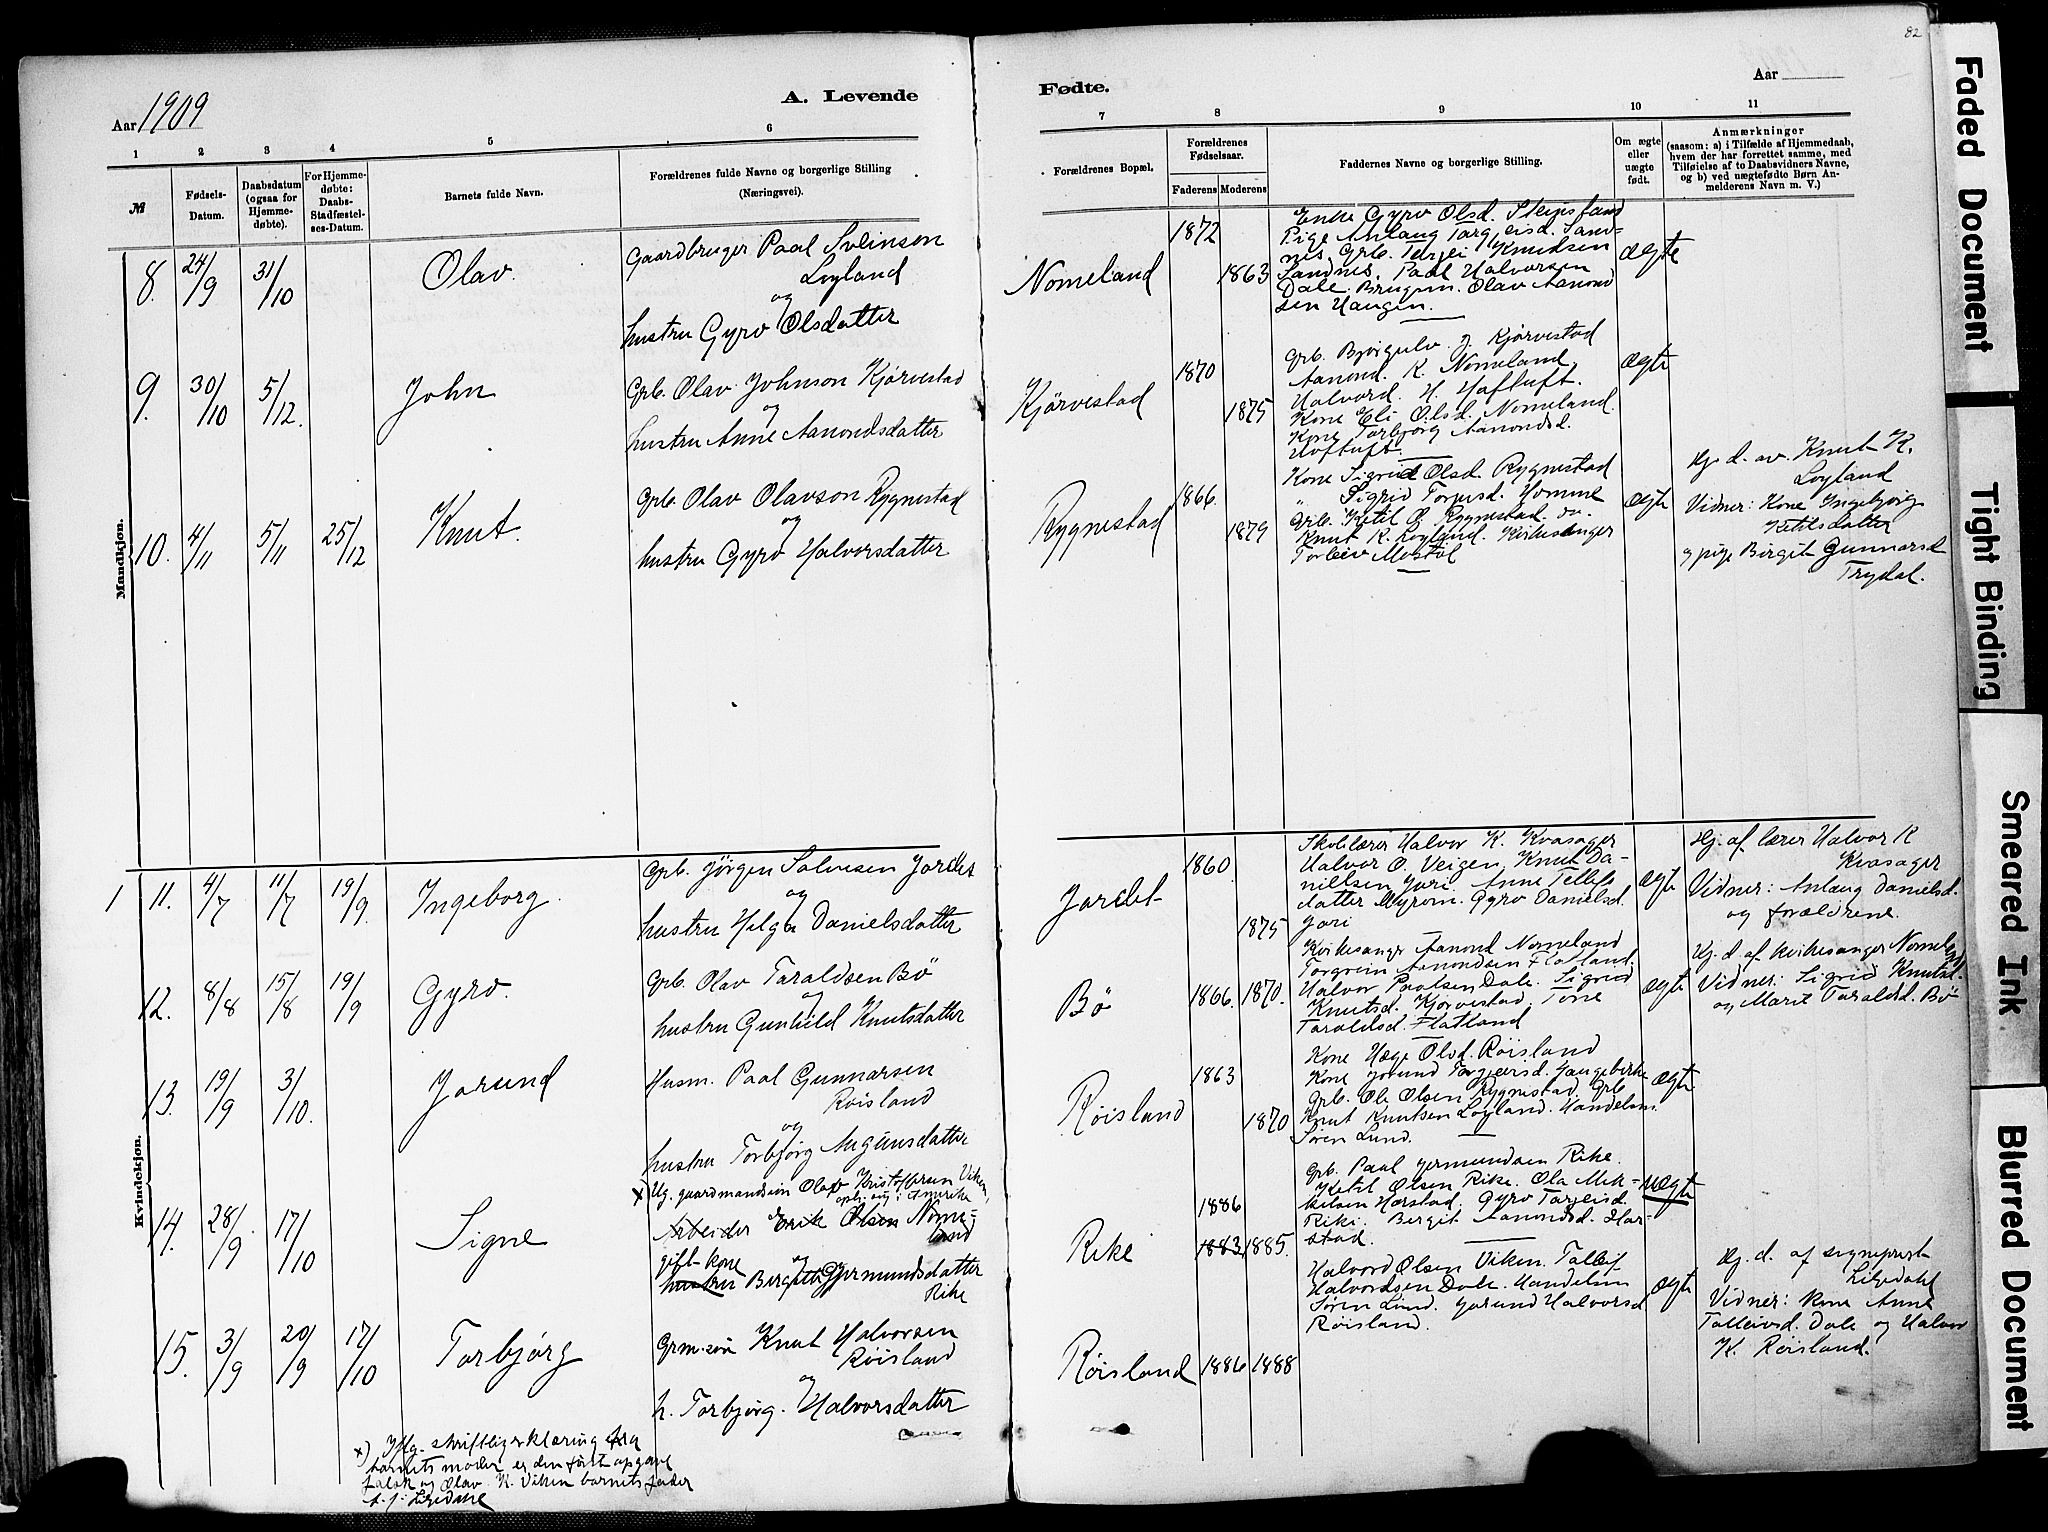 82
Aar 1909
A. Levende
Fødte.
Aar
1 2 3 4 5 6
7 8 9 10 11
№
Fødsels-
Datum.
Daabsdatum
(ogsaa for
Hjemme-
døbte).
For Hjemme-
døbte:
Daabs-
Stadfæstel-
ses-Datum.
Barnets fulde Navn.
Forældrenes fulde Navne og borgerlige Stilling
(Næringsvei).
Forældrenes Bopæl.
Forældrenes
Fødselsaar.
Faderens Moderens
Faddernes Navne og borgerlige Stilling.
Om ægte
eller
uægte
født.
Anmærkninger
(saasom: a) i Tilfælde af Hjemmedaab,
hvem der har forrettet samme, med
Tilføielse af to Daabsvidners Navne,
og b) ved uægtefødte Børn An-
melderens Navn m. V.)
Mandkjøn.
8. 24/9 31/10 Olav.
Gaardbruger Paal Sveinson
Loyland
og
hustru Gyro Olsdatter
Nomeland 1872 1863
Enke Gyro Olsd.
Pige Anlaug Targjeisd. Sand-
nes. Grb. Tarjei Knudsen
Sandnes. Paal Halvorsen
Dale. Brugen. Olav Aanond
sen Haugen.
ægte
9. 30/10 5/12. John
Grb. Olav Johnson Kjörvestad
og
hustru Anne Aanondsdatter
Kjörvestad 1870 1875
Grb. Bjørgulv J. Kjørvestad
Aanond. K. Nomeland
Halvord. H. Hoftuft.
Kone Eli Olsd. Nomeland.
Kone Torbjörg Aanondsd.
Hoftuft.
ægte
10. 4/11 5/11 25/12 Knut.
Grb. Olav Olavson Rygnestad
og
hustru Gyro Halvorsdatter
Rygnestad 1866. 1879
Kone Sigrid Olsd. Rygnestad
" Sigrid Torjusd. Homme
Grb. Ketil O. Rygnestad. do.
Knut K. Loyland. Kirkesanger
Torleiv Mostöl
ægte
Hj. d. av. Knut K.
Loyland
Vidner: Kone Ingebjörg
Ketilsdatter
og pige Birgit Gunnarsd
Trydal.
Kvindekjøn.
1 11. 4/7 11/7 19/9. Ingeborg.
Grb. Jörgen Salvesen Jordet
og
hustru Helga Danielsdatter
Jordet 1860. 1875
Skolelærer Halvor K. Kvasager
Halvor O. Veigen, Knut Da-
nielsen Jori. Anne Tellefs
datter Myrom. Gyro Danielsd.
Jori
ægte
Hj. af lærer Halvor K
Kvasager
Vidner: Anlaug Danielsd.
og forældrene.
12. 8/8 15/8 19/9 Gyro.
Grb. Olav Taraldsen Bö
og
hustru Gunhild Knutsdatter
Bö 1866. 1870.
Kirkesanger Aanond Nomeland
Torgrim Aanondsen Flatland.
Halvor Paalsen Dale. Sigrid
Knutsd. Kjørvestad. Tone
Taraldsd. Flatland
ægte
Hj. d. af kirkesanger Nomeland
Vidner: Sigrid Knutsd.
og Marit Taraldsd. Bö
13. 19/9 3/10. Jorund
Husm. Paal Gunnarsen
Röisland
og
hustru Torbjörg Augunsdatter
Röisland 1863 1870
Kone Hæge Olsd. Röisland
Kone Jorund Torgeirsd. Haugebirke
Grb. Ole Olsen Rygnestad. Grb.
Knut Knutsen Loyland. Handelsm.
Sören Lund.
ægte
14. 28/9 17/10 Signe
x Ug. gaardmandssön Olav Kristoffersen Viken,
oph. sig i Amerika
Arbeider Erik Olsen Nome-
land
gift kone og
hustru Birgitte Gjermundsdatter
Rike
Rike 1886 1883 1885.
Grb. Paal Gjermundsen Rike.
Ketil Olsen Rike. Ola Mik-
kelsen Harstad. Gyro Tarjeisd.
Rike. Bergit Aanondsd. Har-
stad.
uægte
15. 3/9 20/9 17/10 Torbjörg
Grm. sön Knut Halvorsen
Röisland
og
h. Torbjörg. Halvorsdatter
Röisland 1886 1888
Halvord Olsen Viken. Tallef
Halvordsen Dale. Handelsm
Sören Lund. Jorund Halvorsd
Röisland.
ægte
Hj. d. af sogneprest
Liljedahl
Vidner: Kone Anne
Talleivsd. Dale og Halvor
K. Röisland.
x) Iflg. skriftlig erklæring fra
barnets moder er den först opgave
falsk og Olav K. Viken barnets fader
Liljedahl
Faded Document
Tight Binding
Smeared Ink
Blurred Document